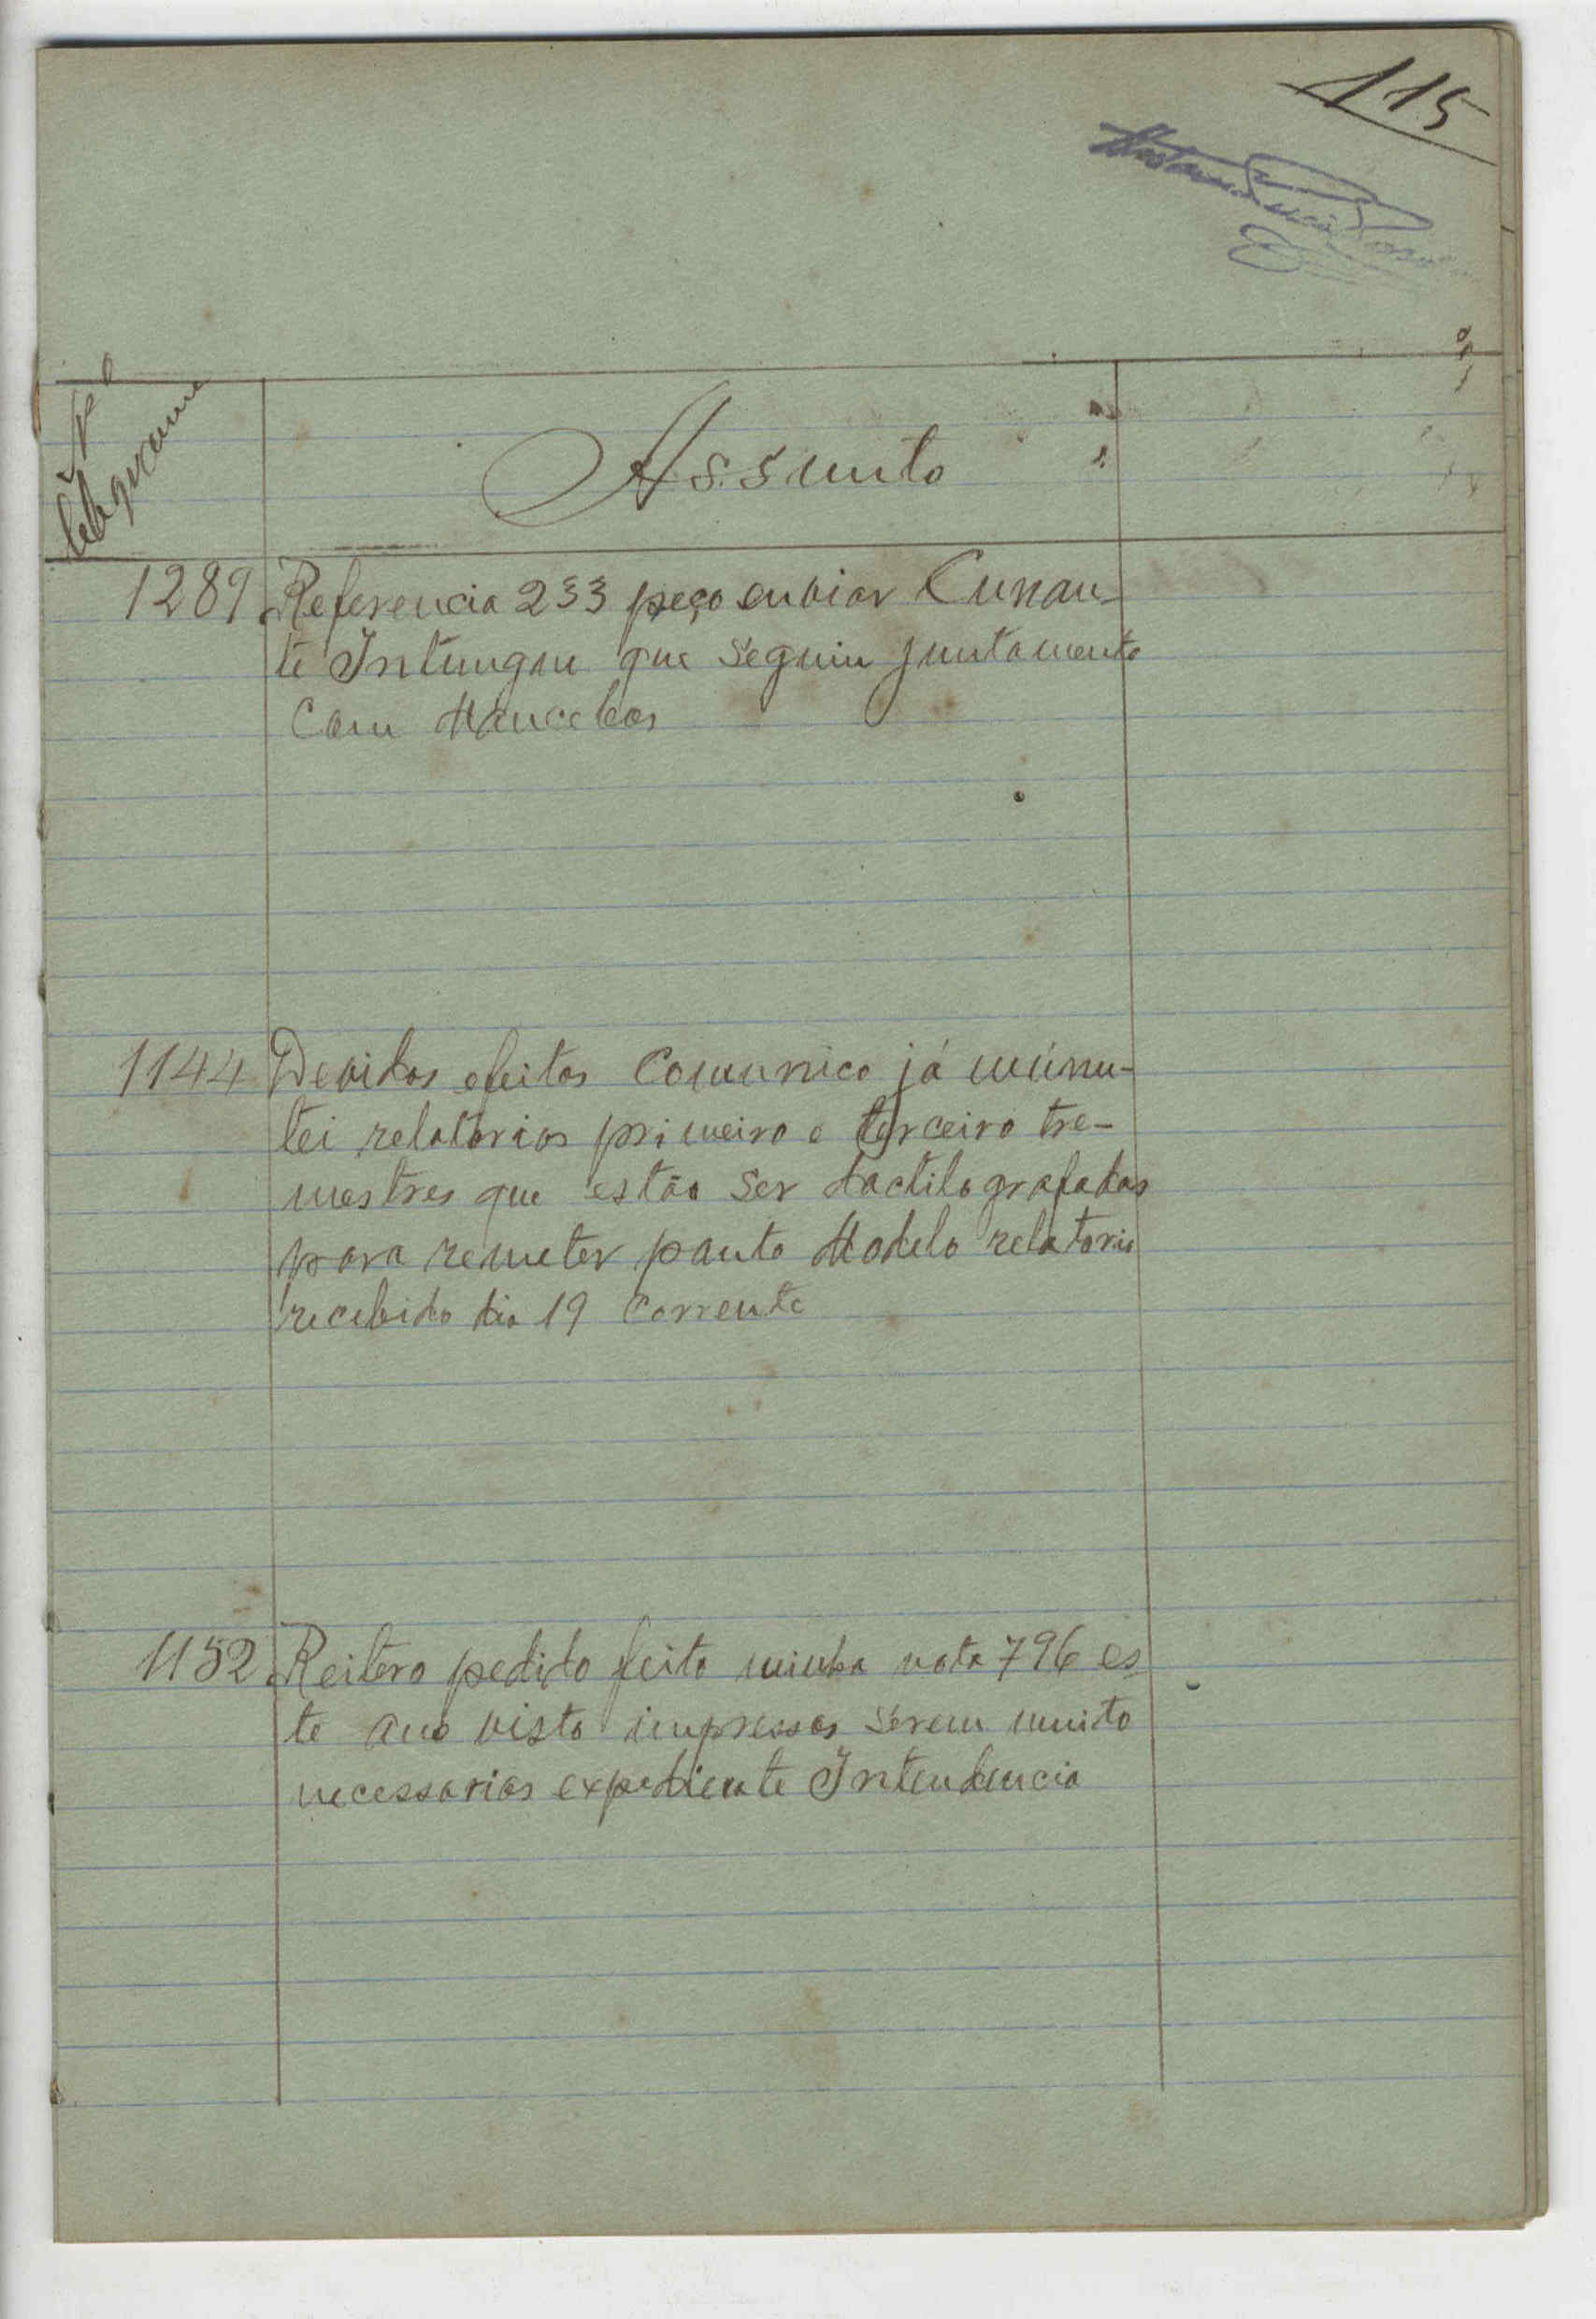 115
Nº
telegrama
Assunto
1289 Referencia 233 peço enviar Cunan-
te Intungau que seguiu juntamente
com Mancebos
1144 Devidos efeitos comunico já minu-
tei relatorios primeiro e terceiro tre-
mestres que estão ser dactilografados
para remeter ponto Modelo relatorio
recebido dia 19 corrente
1152 Reitero pedido feito minha nota 796 es
te ano visto impressos serem muito
necessarios expediente Intendencia